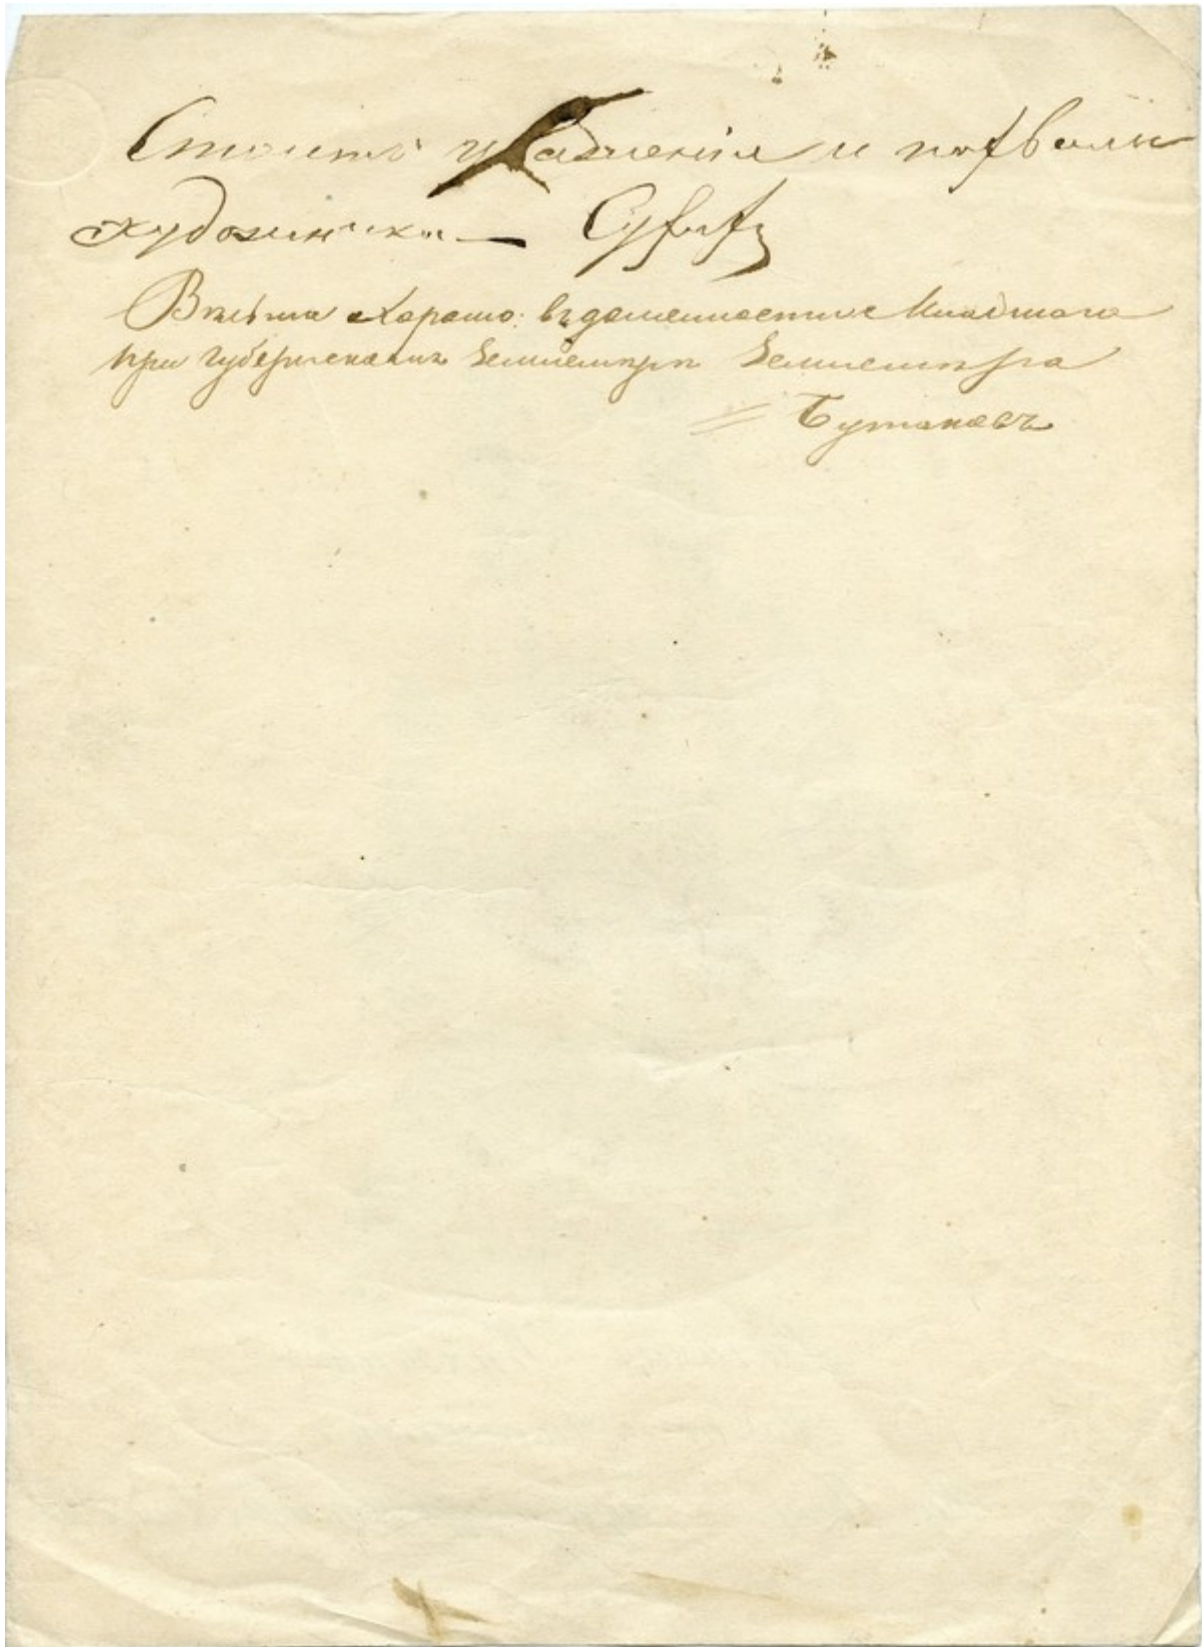 Стоитъ уваженія и похвалы
художника —
Весьма Харашо: въ должности Младшаго
при губернскамъ Землемѣрѣ Землемѣра
Бутаковъ